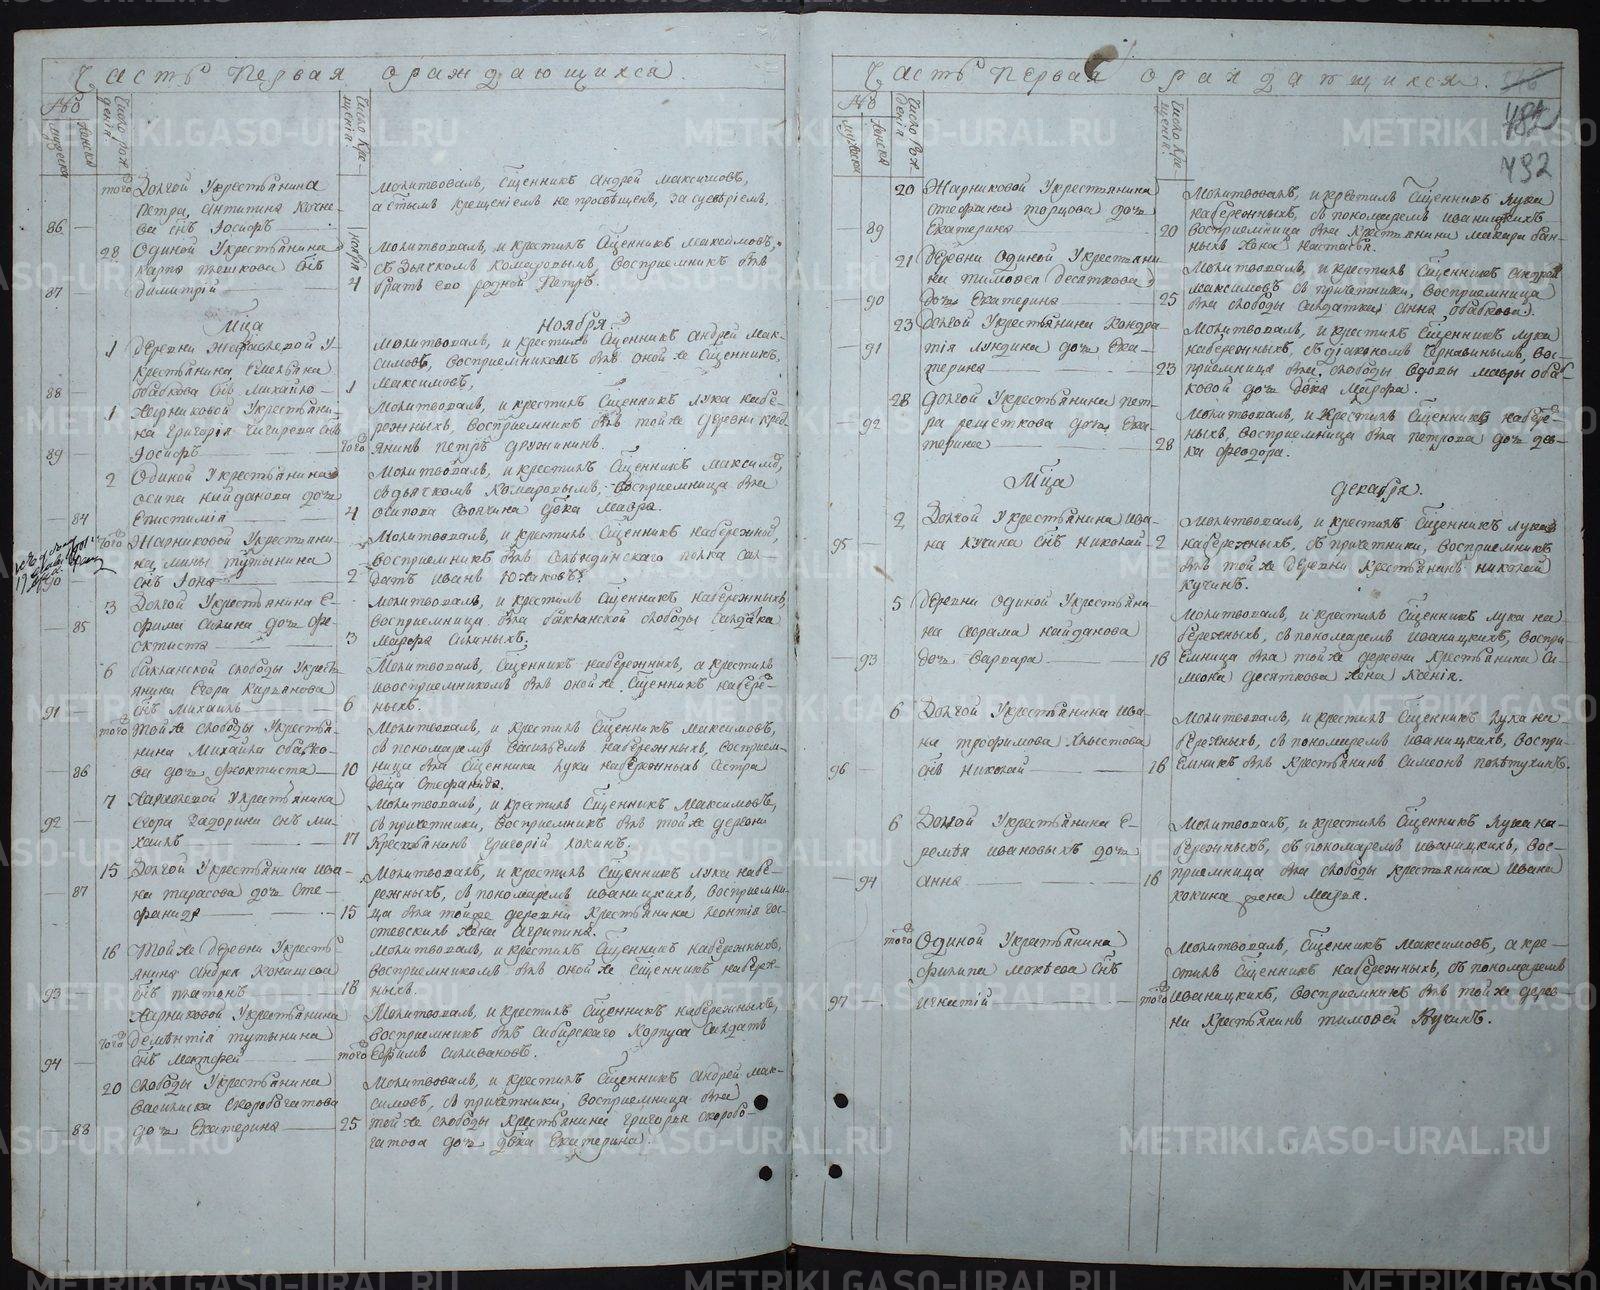 Часть первая ораждающихся.
№
мужеска
женска
число рождения
число крещения
того
Долгой У крестьянина
Петра Антипина Кочне-
86 — ва снъ Иосифъ
Молитвовалъ, Сщенникъ Андрей Максимовъ,
а стымъ крещениемъ не просвещенъ,
28 Одиной У крестьянина
Карпа Пешкова снъ
87 — Димитрий
ноября 4
Молитвовалъ, и крестилъ Сщенникъ Максимовъ,
съ дьячкомъ Комаровымъ, восприемникъ былъ
братъ его родной Петръ.
Мца Ноября
1 деревни У
крестьянина Емельяна
88 — Обабкова снъ Михайло — 1
Молитвовалъ, и крестилъ Сщенникъ Андрей Мак-
симовъ, восприемникомъ былъ оной же Сщенникъ
Максимовъ,
1 Жарниковой У крестьяни-
на Григория Чигирева снъ
89 — Иосифъ — того
Молитвовалъ, и крестилъ Сщенникъ Лука Набе-
режныхъ, восприемникъ былъ той же деревни крест-
янинъ Петръ Дружининъ.
2 Одиной У крестьянина
Осипа Найданова дочь
— 84 Епистимия — 4
Молитвовалъ, и крестилъ Сщенникъ Максимовъ,
съ дьячкомъ Комаровымъ, восприемница была
Осипова девка Мавра.
того Жарниковой У крестьяни-
на Мины Тутынина
90 снъ Иона — 2
Молитвовалъ, и крестилъ Сщенникъ Набережной,
восприемникъ былъ полка сол-
датъ Иванъ Южаковъ.
3 Долгой У крестьянина Е-
фима Силина дочь Фе-
— 85 октиста — 3
Молитвовалъ, и крестилъ Сщенникъ Набережныхъ,
восприемница была слободы солдатка
Марфа Силиныхъ.
6 слободы У кресть-
янина Егора Карванова
91 — снъ Михаилъ — 6
Молитвовалъ, Сщенникъ Набережныхъ, а крестилъ
и восприемникомъ былъ оной же Сщенникъ Набере-
жныхъ.
того Той же слободы У крестья-
нина Михайла Обабко-
— 86 ва дочь Феоктиста — 10
Молитвовалъ, и крестилъ Сщенникъ Максимовъ,
съ пономаремъ Васильемъ Набережныхъ, восприем-
ница была Сщенника Луки Набережныхъ сестра
девица Стефанида.
7 У крестьянина
92 — Егора снъ Ми-
хаилъ — 17
Молитвовалъ, и крестилъ Сщенникъ Максимовъ,
съ причетники, восприемникъ былъ той же деревни
крестьянинъ Григорий Кокинъ.
15 Долгой У крестьянина Ива-
— 87 на Тарасова дочь Сте-
фанида — 15
Молитвовалъ, и крестилъ Сщенникъ Лука Набе-
режныхъ, съ пономаремъ Иваницкихъ, восприемни-
ца была той же деревни крестьянина Леонтия
жена Агрипина.
16 Той же деревни У кресть-
янина Андрея Конашева
93 снъ Платонъ — 18
Молитвовалъ, и крестилъ Сщенникъ Набережныхъ,
восприемникомъ былъ оной же Сщенникъ Набереж-
ныхъ.
Жарниковой У крестьянина
того Дементия Тутынина
94 — снъ Матфей — того
Молитвовалъ, и крестилъ Сщенникъ Набережныхъ,
восприемникъ былъ Сибирскаго корпуса солдатъ
Ефимъ Силивановъ.
20 Слободы У крестьянина
Василиска Скоробогатова
— 88 дочь Екатерина — 25
Молитвовалъ, и крестилъ Сщенникъ Андрей Мак-
симовъ, съ причетники, восприемница была
той же слободы крестьянина Григорья Скоробо-
гатова дочь девка Екатерина.
Часть первая ораждающихся.
482
492
№
мужеска
женска
число рождения
число крещения
20 Жарниковой У крестьянина
Стефана Торцова дочь
— 89 Екатерина — 20
Молитвовалъ, и крестилъ Сщенникъ Лука
Набережныхъ, съ пономаремъ Иваницкихъ
восприемница была крестьянина Макара
жена Настасья.
21 деревни Одиной У крестьяни-
на Тимофея Десяткова
— 90 дочь Екатерина — 25
Молитвовалъ, и крестилъ Сщенникъ Андрей
Максимовъ съ причетники, восприемница
была слободы солдатка Анна Обабкова.
23 Долгой У крестьянина Кондра-
— 91 тия Лундина дочь Ека-
терина — 23
Молитвовалъ, и крестилъ Сщенникъ Лука
Набережныхъ, съ диакономъ Чернавинымъ, вос-
приемница была слободы вдовы Мавры Обаб-
ковой дочь девка Марфа.
28 Долгой У крестьянина Пет-
— 92 ра Решеткова дочь Ека-
терина — 28
Молитвовалъ, и крестилъ Сщенникъ Набереж-
ныхъ, восприемница была Петрова дочь дев-
ка Феодора.
Мца декабря.
2 Долгой У крестьянина Ива-
95 — на Кучина снъ Николай — 2
Молитвовалъ, и крестилъ Сщенникъ Лука
Набережныхъ, съ причетники, восприемникъ
былъ той же деревни крестьянинъ Николай
Кучинъ.
5 деревни Одиной У крестьяни-
на Аврама Найданова
— 93 дочь Варвара — 16
Молитвовалъ, и крестилъ Сщенникъ Лука На-
бережныхъ, съ пономаремъ Иваницкихъ, воспри-
емница была той же деревни крестьянина Си-
меона Десяткова жена Ксения.
6 Долгой У крестьянина Ива-
на Трофимова Хвыстова
96 — снъ Николай — 16
Молитвовалъ, и крестилъ Сщенникъ Лука На-
бережныхъ, съ пономаремъ Иваницкихъ, воспри-
емникъ былъ крестьянинъ Симеонъ Полетухинъ.
6 Долгой У крестьянина Е-
ремея Ивановыхъ дочь
— 94 Анна — 16
Молитвовалъ, и крестилъ Сщенникъ Лука На-
бережныхъ, съ пономаремъ Иваницкихъ, вос-
приемница была слободы крестьянина Ивана
Кокина жена Марья.
того Одиной У крестьянина
Филипа Мокеева снъ
97 — Игнатий — того
Молитвовалъ, Сщенникъ Максимовъ, а кре-
стилъ Сщенникъ Набережныхъ, съ пономаремъ
Иваницкихъ, восприемникъ былъ той же дерев-
ни крестьянинъ Тимофей Вучинъ.
METRIKI.GASO-URAL.RU